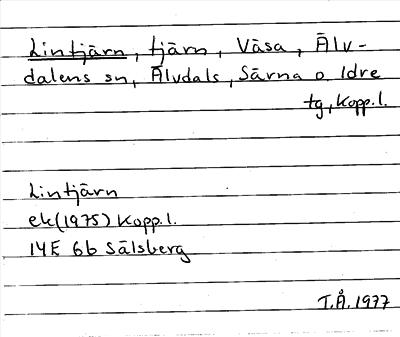 Lintjärn, tjärn, Väsa, Älv-
dalens sn, Älvdals, Särna o. Idre
tg, Kopp.l.
Lintjärn
ek(1975) Kopp.l.
14E 6b Sälsberg
T.Å. 1977